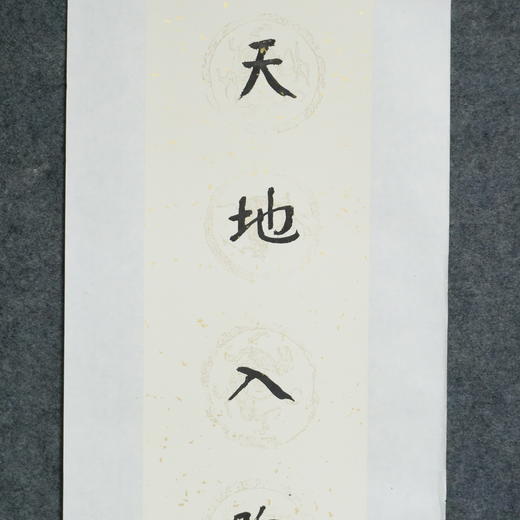 天地入